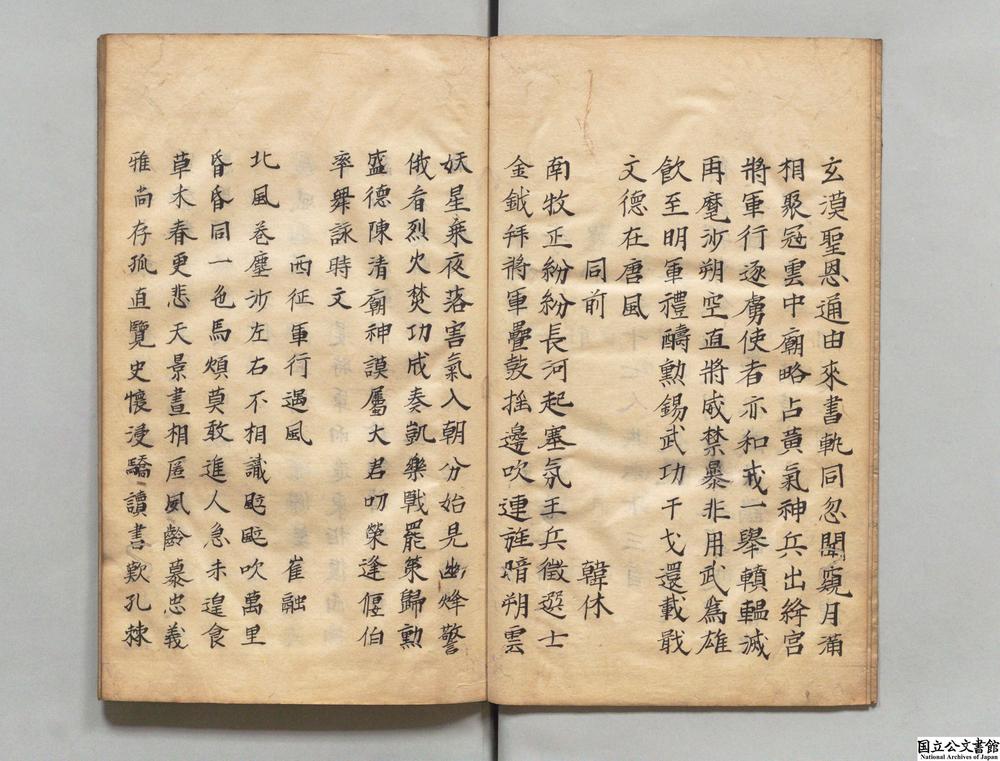 玄漠聖恩通由來書軌同忽聞窺月滿
相聚冠雲中廟略占黃氣神兵出絳宮
將軍行逐虜使者亦和戎一舉轒轀滅
再麾沙朔空直將威禁暴非用武爲雄
飲至明軍禮酧勲錫武功干戈還載戢
文德在唐風
同前　韓休
南牧正紛紛長河起塞氛王兵徵選士
金鉞拜將軍疊鼓摇邊吹連旌暗朔雲
妖星乘夜落害氣入朝分始見幽烽警
俄看烈火焚功成奏凱樂戰罷策歸勲
盛德陳清廟神謨屬大君叨榮逢偃伯
率舞詠時文
西征軍行遇風　崔融
北風卷塵沙左右不相識颭颭吹萬里
昏昏同一色馬煩莫敢進人急未遑食
草木春更悲天景晝相匿夙齡慕忠義
雅尚存孤直覽史懷浸驕讀書歎孔棘
国立公文書館
National Archives of Japan